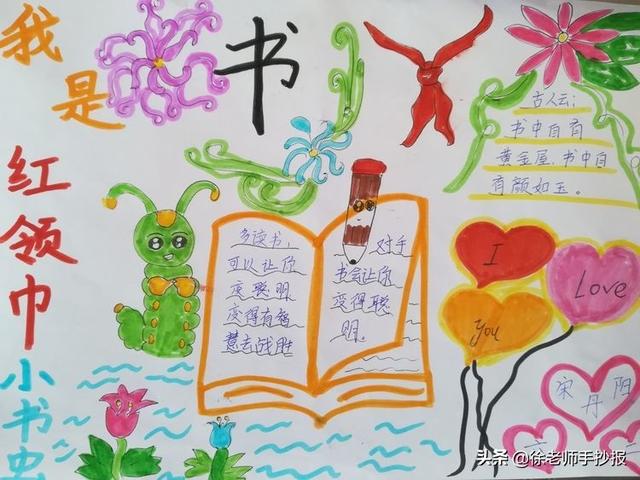 我是
书
红领巾
小书虫
古人云:
书中自有
黄金屋,书中自
有颜如玉。
多读书,
可以让你
变聪明
变得有智
慧去战胜
对手
书会让你
变得聪
明。
I
Love
You
宋丹阳
六
二
头条 @徐老师手抄报